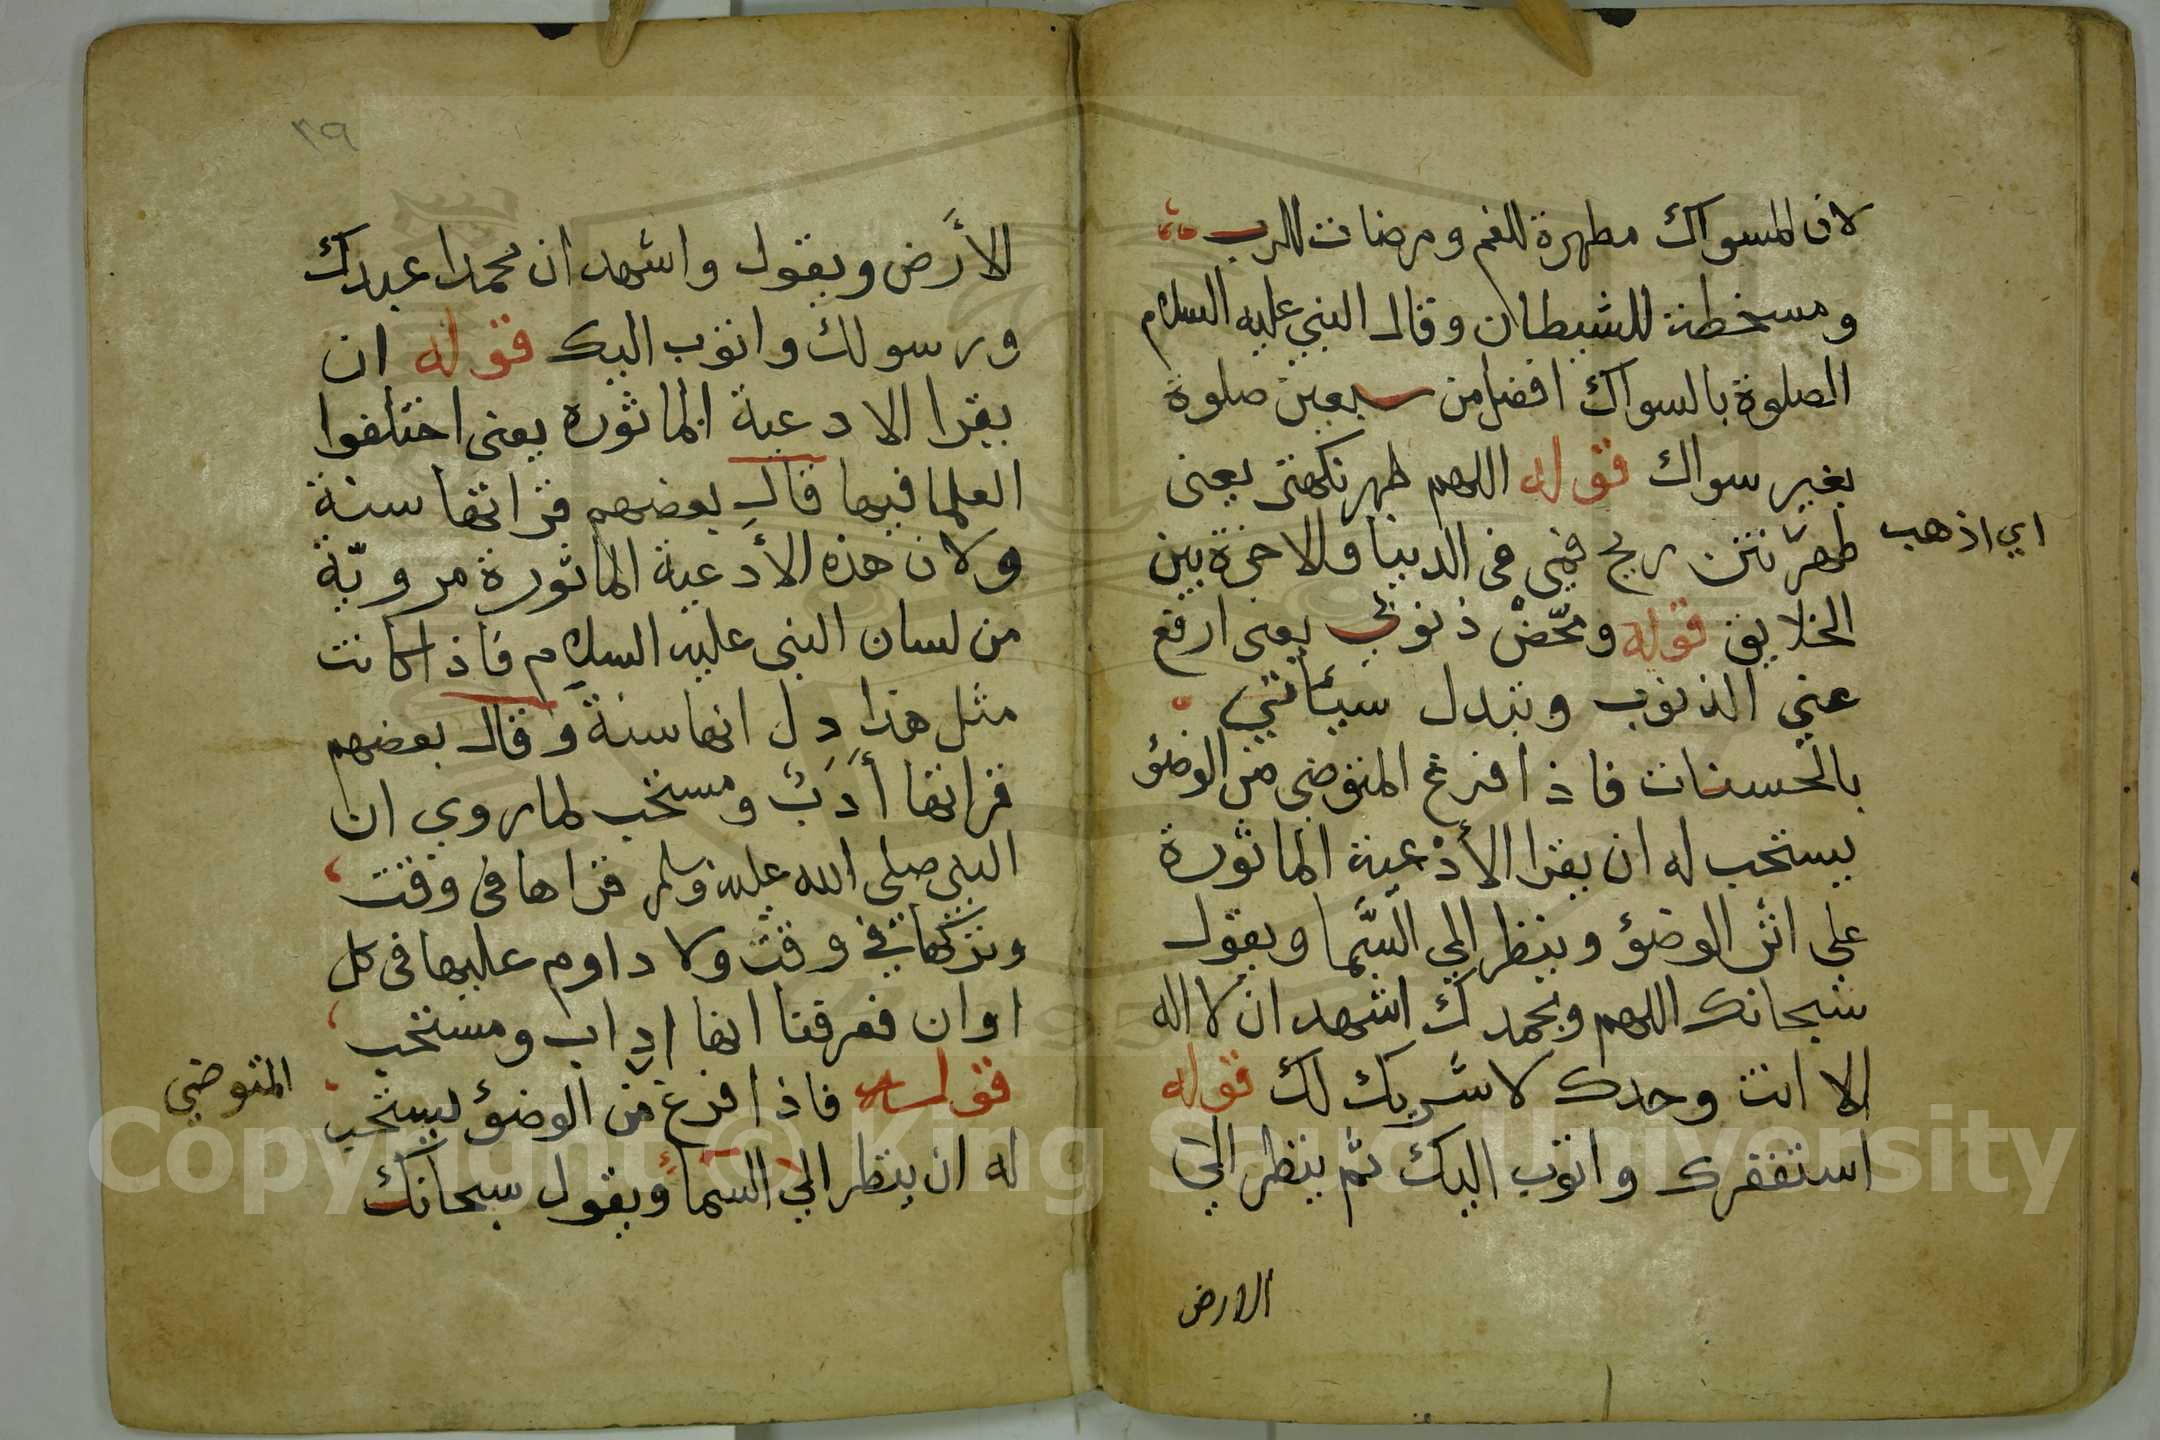 لان المسواك مطهرة للفم ومرضات للرب
ومسخطة للشيطان وقال النبي عليه السلام
الصلوة بالسواك افضل من سبعين صلوة
بغير سواك قوله اللهم طهر نكهتى يعنى
طهر نتن ريح فمي فى الدنيا والاخرة بين
اي اذهب
الخلايق قوله ومحّضْ ذنوبي يعنى ارفع
عني الذنوب وتبدل سيئاتي
بالحسنات فاذا فرغ المتوضي من الوضؤ
يستحب له ان يقرا الأدْعية الماثورة
على اثر الوضؤ وينظر الي السّما ويقول
سبحانك اللهم وبحمدك اشهد ان لا اله
الا انت وحدك لا شريك لك قوله
استغفرك واتوب اليك ثم ينظر الي
الارض
٣٩
الأرض ويقول واشهد ان محمدا عبدك
ورسولك واتوب اليك قوله ان
يقرا الادعية الماثورة يعنى اختلفوا
العلما فيها قال بعضهم قراتها سنة
ولان هذه الأدعية الماثورة مرويّة
من لسان النبى عليه السلام فاذا كانت
مثل هذا دل انها سنة وقال بعضهم
قراتها أدب ومستحب لما روي ان
النبي صلى الله عليه وسلم قراها فى وقت
وتركها في وقت ولا داوم عليها فى كل
اوان فعرفنا انها اداب ومستحب
قوله فاذا فرغ من الوضؤ يستحب
المتوضي
له ان ينظر الي السما ويقول سبحانك
Copyright © King Saud University